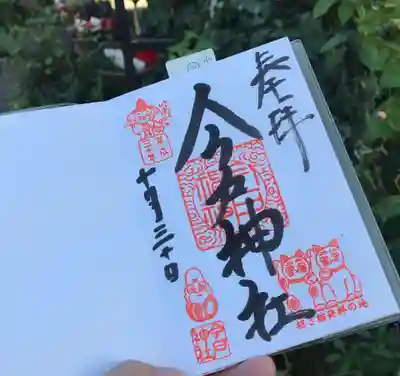 奉拝
今戸神社
十月三十日
招き猫発祥の地
今戸
神社